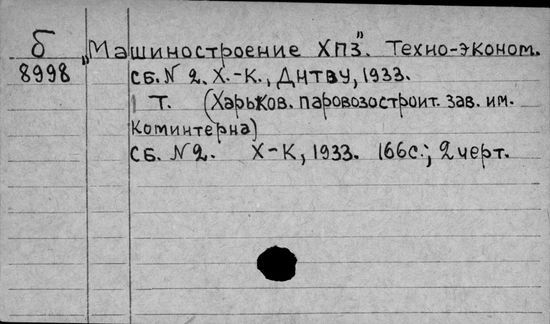 б „Машиностроение ХПЗ". Техно-эконом.
8998 сб. N 2. Х.-К., ДНТВУ, 1933.
1 т. (Харьков. паровозостроит. зав. им.
Коминтерна)
сб. N 2. Х-К, 1933. 166с.; 2 черт.